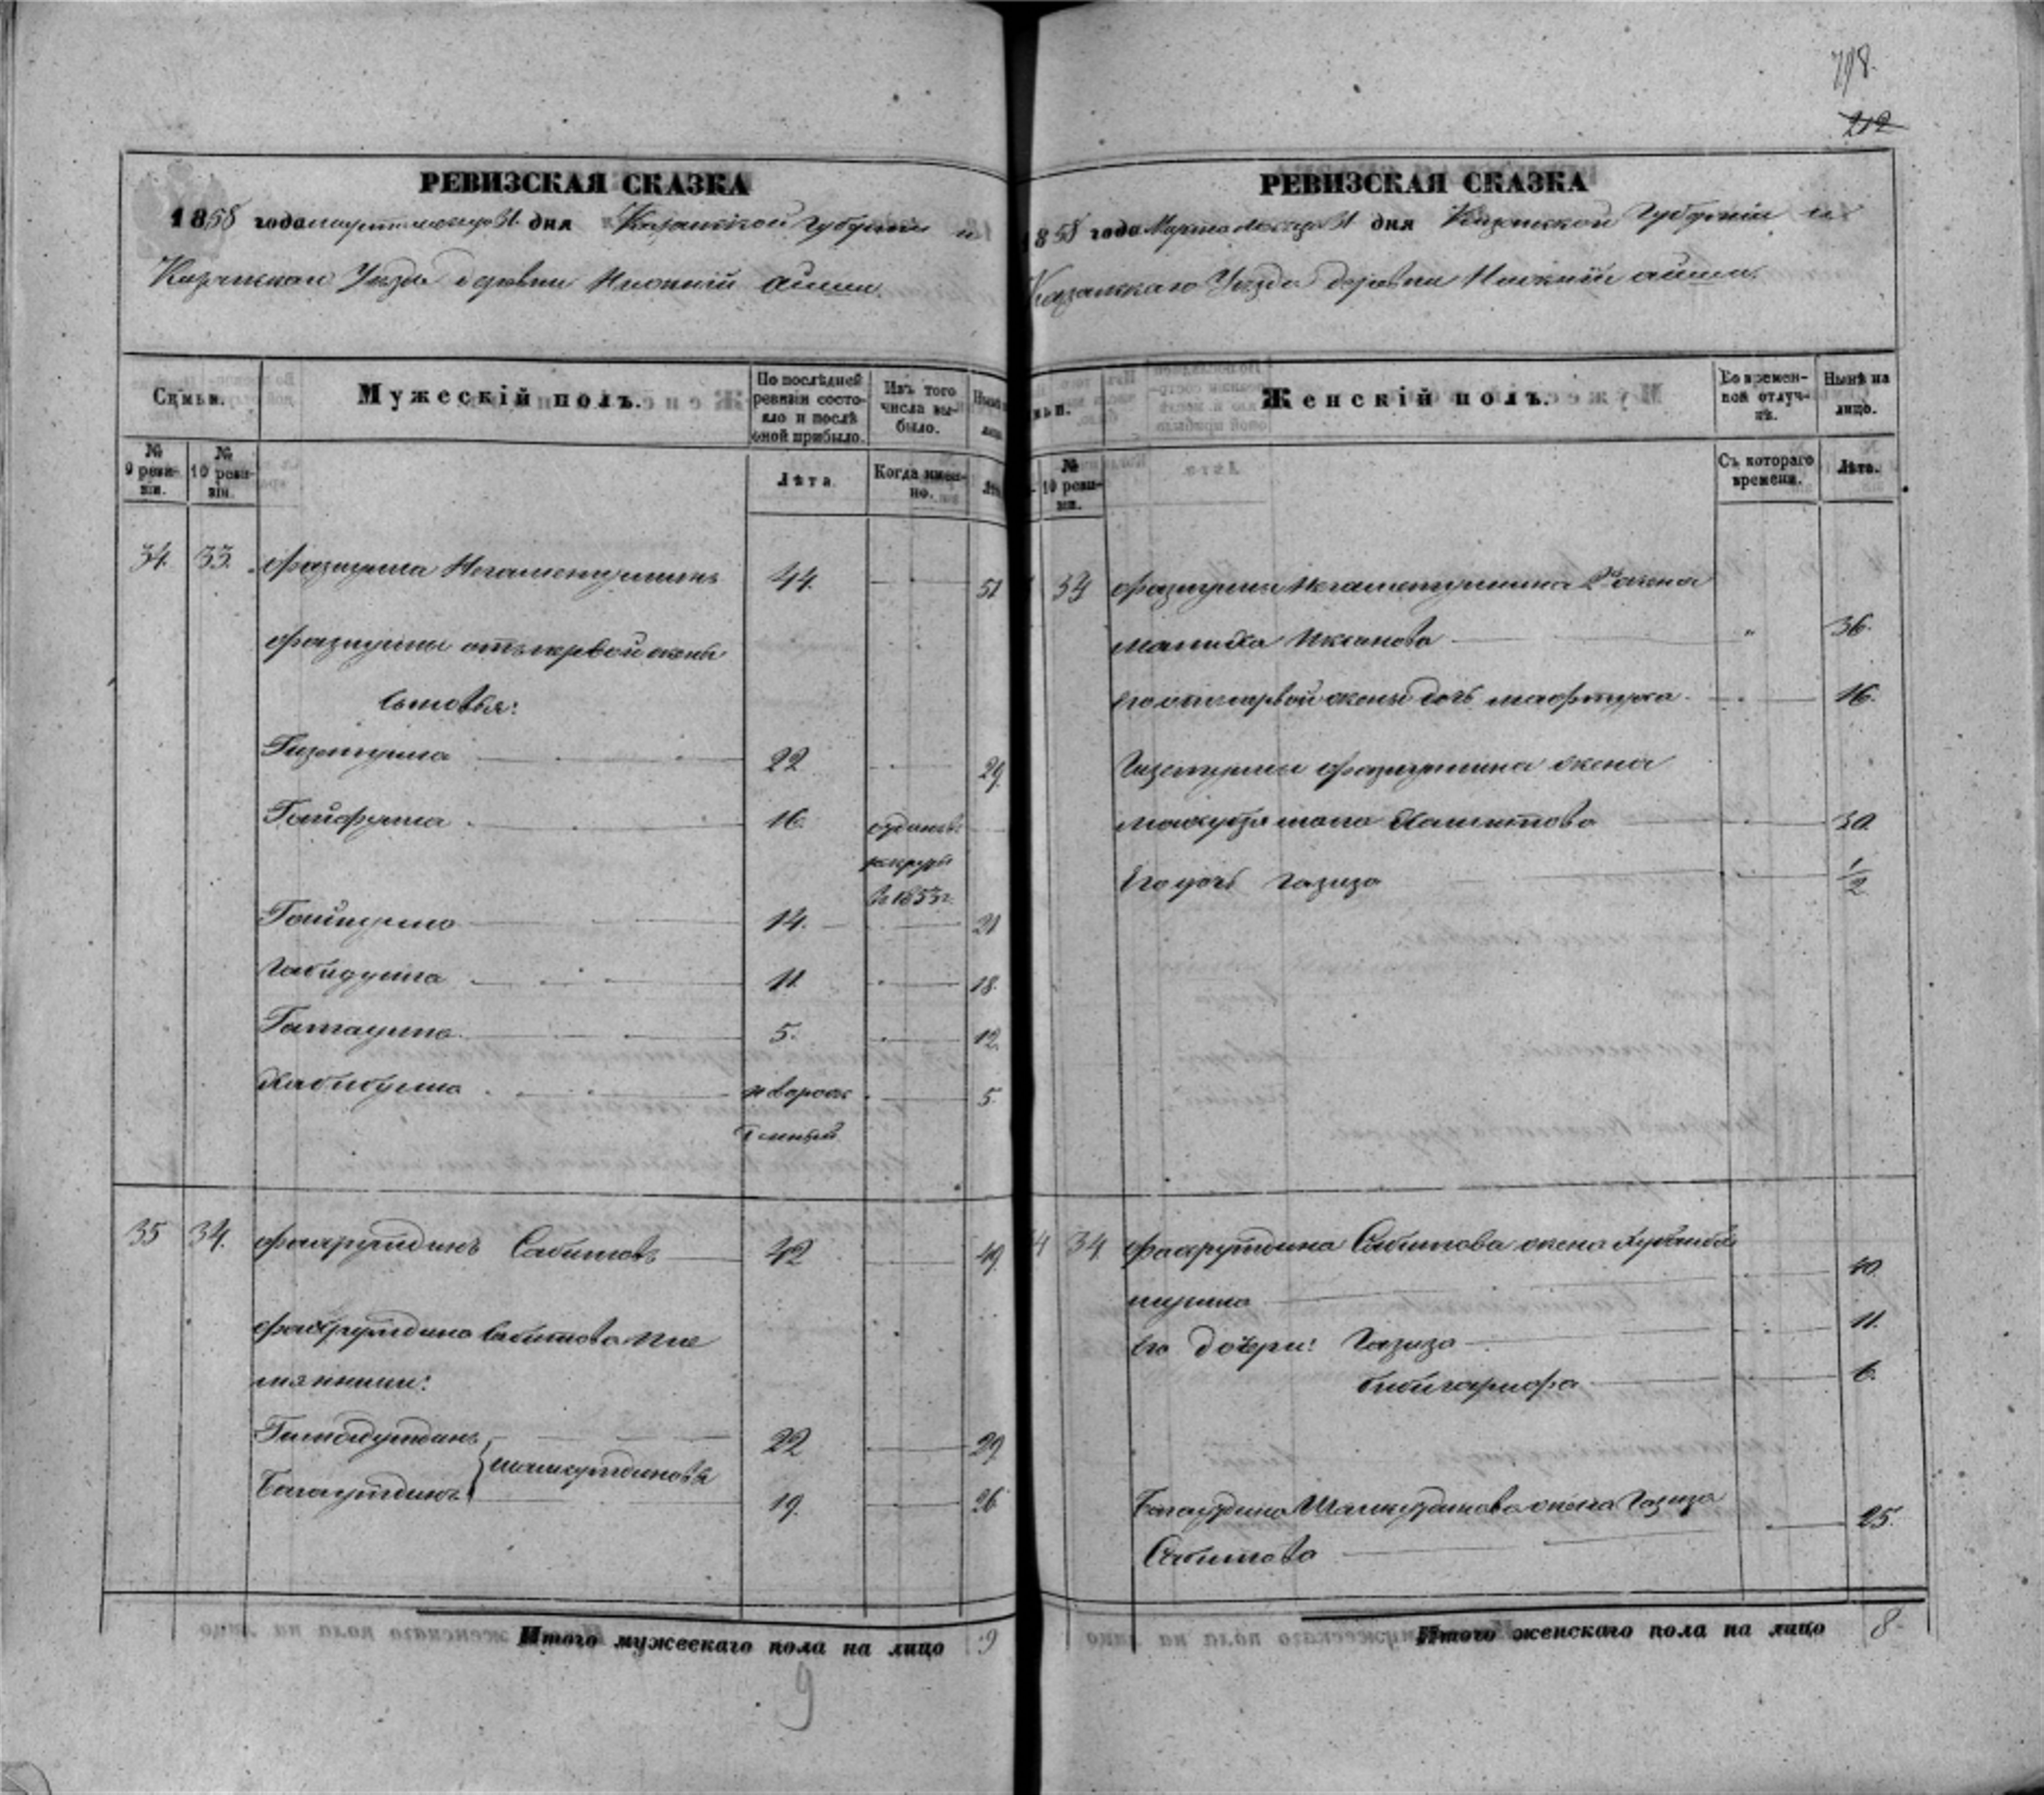 798.
212
РЕВИЗСКАЯ СКАЗКА
1858 года марта месяца 31 дня Казанской Губернии и
Казанскаго Уезда деревни Нижний Аиши.
Семьи.
Мужескій полъ.
По послѣдней ревизіи состояло и послѣ оной прибыло.
Изъ того числа выбыло.
№ 9 ревизіи.
№ 10 ревизіи.
Лѣта
Когда именно.
34. 33. Фазлулла Негаметуллинъ 44. 51
Фазлуллы отъ первой жены
сыновья:
Гизетулла 22 29.
Гайфулла 16 отданъ въ
рекруты
въ 1853 г.
14. 21
Габидулла 11 18.
Гатаулла 5. 12.
Хабибулла новорож 5.
денный
35 34. Фахрутдинъ Сабитовъ 42 49.
Фахрутдина Сабитова пле
мянники:
22 29
Багаутдинъ 19. 26
Итого мужескаго пола на лицо 9
9
РЕВИЗСКАЯ СКАЗКА
1858 года Марта месяца 31 дня Казанской Губерніи и
Казанскаго Уезда деревни Нижній Аиши.
Женскій полъ.
Во временной отлучкѣ.
Нынѣ на лицо.
№ 10 ревизіи.
Съ котораго времени.
Лѣта.
33 Фазлуллы Негаметуллина 2я жена
" 36.
Его отъ первой жены дочь 16.
Гизетуллы Фазлуллина жена
30.
Его дочь Газиза 1/2
34 Фахрутдина Сабитова жена
40.
Его дочери: Газиза 11.
Бибигарифа 6.
Багаутдина жена Газиза
Сабитова 25.
Итого женскаго пола на лицо 8